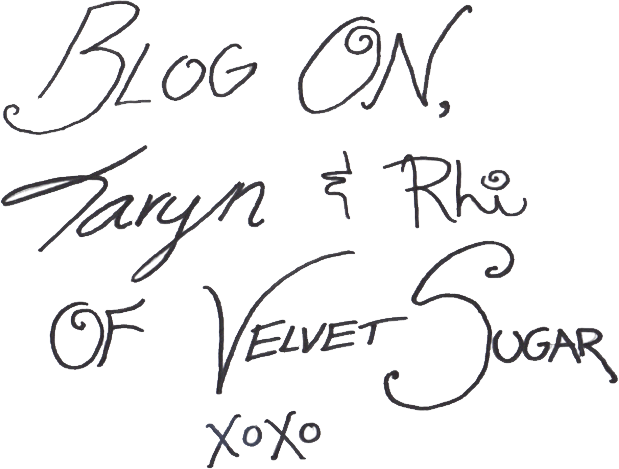 BLOG ON,
Taryn & Rhi
OF VELVET SUGAR
XOXO